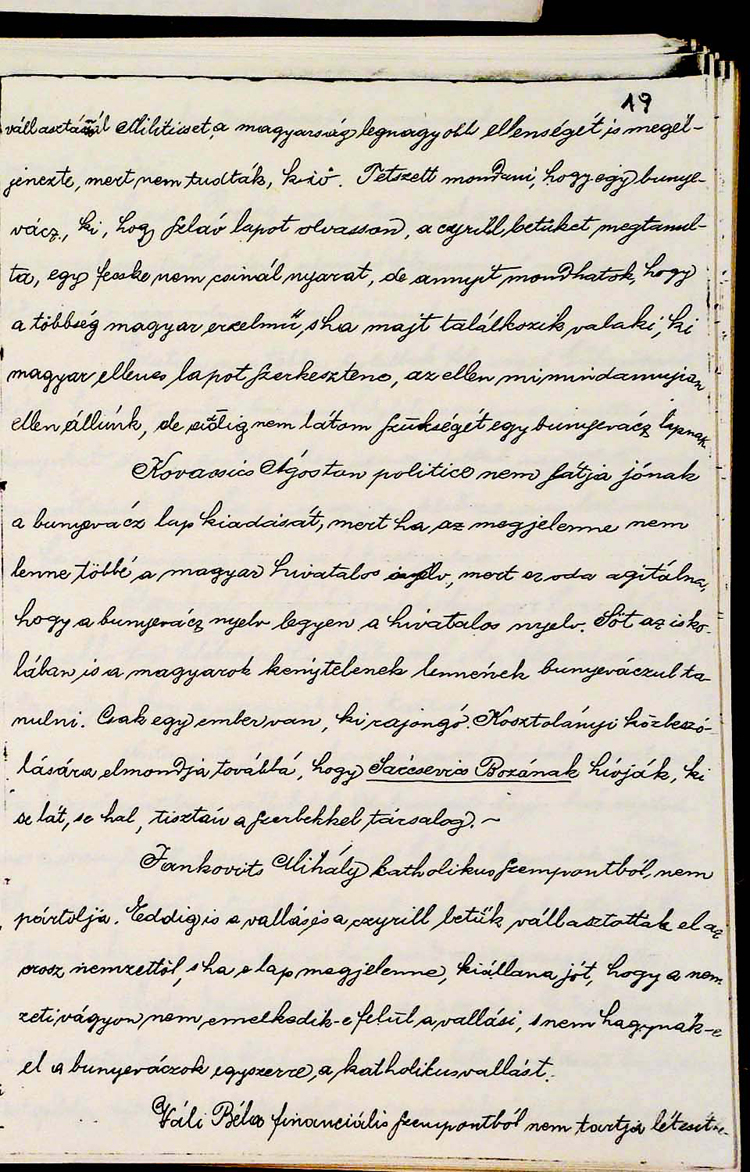 19
választásnál Militicset, a magyarság legnagyobb ellenségét is megél-
jenezte, mert nem tudták, ki ő. Tetszett mondani, hogy egy bunye-
vácz, ki, hogy szláv lapot olvasson, a czyrill betüket megtanul-
ta, egy fecske nem csinál nyarat, de annyit mondhatok, hogy
a többség magyar érzelmű, s ha majt találkozik valaki, ki
magyar ellenes lapot szerkesztene, az ellen mi mindannyian
ellen állúnk, de eddig nem látom szükségét egy bunyevácz lapnak.
Kovacsics Ágoston politice nem látja jónak
a bunyevácz lap kiadását, mert ha az megjelenne nem
lenne többé a magyar hivatalos nyelv, mert ez oda agitálna,
hogy a bunyevácz nyelv legyen a hivatalos nyelv. Sőt az isko-
lában is a magyarok kénytelenek lennének bunyeváczul ta-
nulni. Csak egy ember van, ki rajongó. Kosztolányi közbeszó-
lására elmondja továbbá, hogy Sarcsevics Bozának hívják, ki
se lát, se hal, tisztán a szerbekkel társalog. ~
Jankovits Mihály katholikus szempontból nem
pártolja. Eddig is a vallás és a czyrill betük választottak el az
orosz nemzettől, s ha e lap megjelenne, kiállana jót, hogy a nem-
zeti vágyon nem emelkedik-e felül a vallási, s nem hagynák-e
el a bunyeváczok egyszerre a katholikus vallást.
Váli Béla financiális szempontból nem tartja létesit-